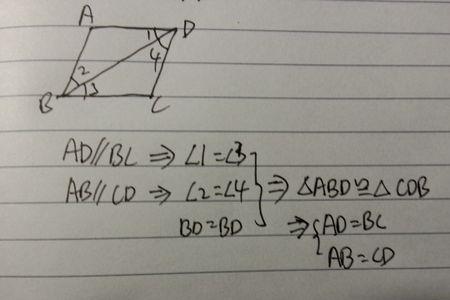 A
1 D
4
2
B 3 C
AD//BC ⇒ ∠1=∠3
AB//CD ⇒ ∠2=∠4 ⇒ △ABD≌△CDB
BD=BD ⇒ AD=BC
AB=CD